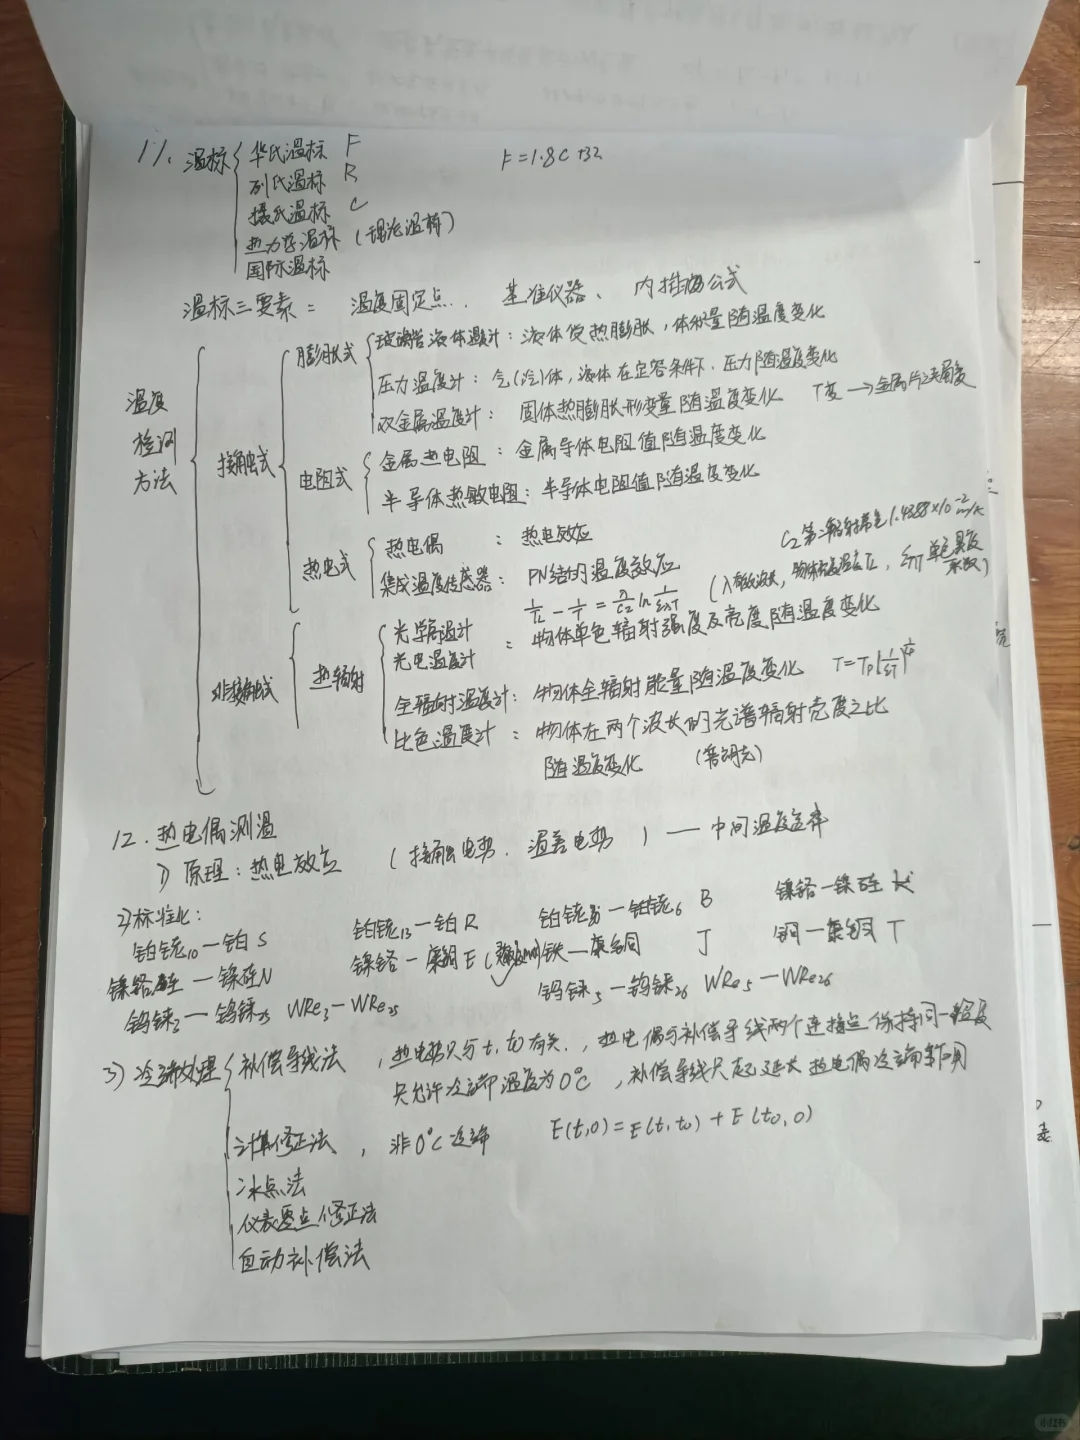 11. 温标 华氏温标 F F=1.8C+32
列氏温标 R
摄氏温标 C
热力学温标 (理论温标)
国际温标
温标三要素= 温度固定点、基准仪器、内插公式
温度检测方法
接触式
膨胀式
玻璃管液体温计:液体受热膨胀,体积量随温度变化
压力温度计:气(汽)体,液体在定容条件下,压力随温度变化
双金属温度计:固体热膨胀形变量随温度变化 T变→金属片
电阻式
金属热电阻:金属导体电阻值随温度变化
半导体热敏电阻:半导体电阻值随温度变化
热电式
热电偶:热电效应
集成温度传感器:PN结的温度效应
C₂第二辐射常量1.4388×10⁻² m/K
1/TL - 1/T = λ/C₂ ln 1/ελT
非接触式
热辐射
光学高温计
光电温度计
:物体单色辐射强度及亮度随温度变化
全辐射温度计:物体全辐射能量随温度变化 T=Tp(1/εT)^¼
比色温度计:物体在两个波长的光谱辐射亮度之比
随温度变化
12.热电偶测温
1)原理:热电效应 (接触电势、温差电势)——中间温度定律
2)标准化:
铂铑₁₀—铂 S 铂铑₁₃—铂 R 铂铑₃₀—铂铑₆ B 镍铬—镍硅 K
镍铬硅—镍硅 N 镍铬—康铜 E 铁—康铜 J 铜—康铜 T
钨铼₃—钨铼₂₅ WRe₃—WRe₂₅ 钨铼₅—钨铼₂₆ WRe₅—WRe₂₆
3)冷端处理 补偿导线法,热电势只与t,t0有关,热电偶与补偿导线两个连接点保持同一温度
只允许冷端温度为0℃,补偿导线只起延长热电偶冷端作用
计算修正法,非0℃冷端 E(t,0)=E(t,t0)+E(t0,0)
冰点法
仪表零点修正法
自动补偿法
小红书